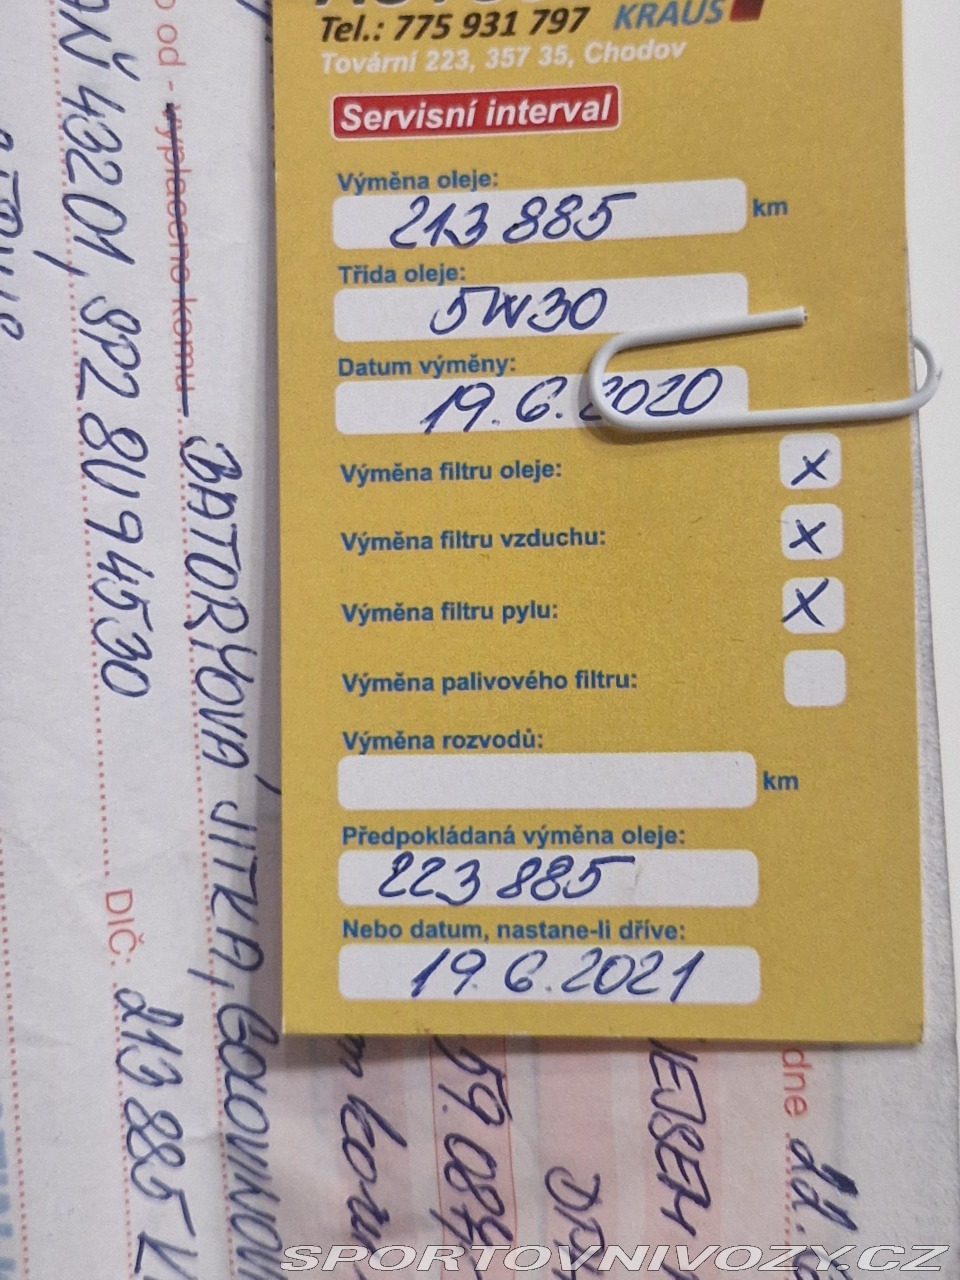 KRAUS
Tel.: 775 931 797
Tovární 223, 357 35, Chodov
Servisní interval
Výměna oleje:
213 885 km
Třída oleje:
5W30
Datum výměny:
19. 6. 2020
Výměna filtru oleje: X
Výměna filtru vzduchu: X
Výměna filtru pylu: X
Výměna palivového filtru:
Výměna rozvodů:
km
Předpokládaná výměna oleje:
223 885
Nebo datum, nastane-li dříve:
19. 6. 2021
od - vyplaceno komu BATORYOVÁ JITKA,
43201, SPZ 8U9 4530
DIČ: 213 885
59.08
dne
SPORTOVNIVOZY.CZ